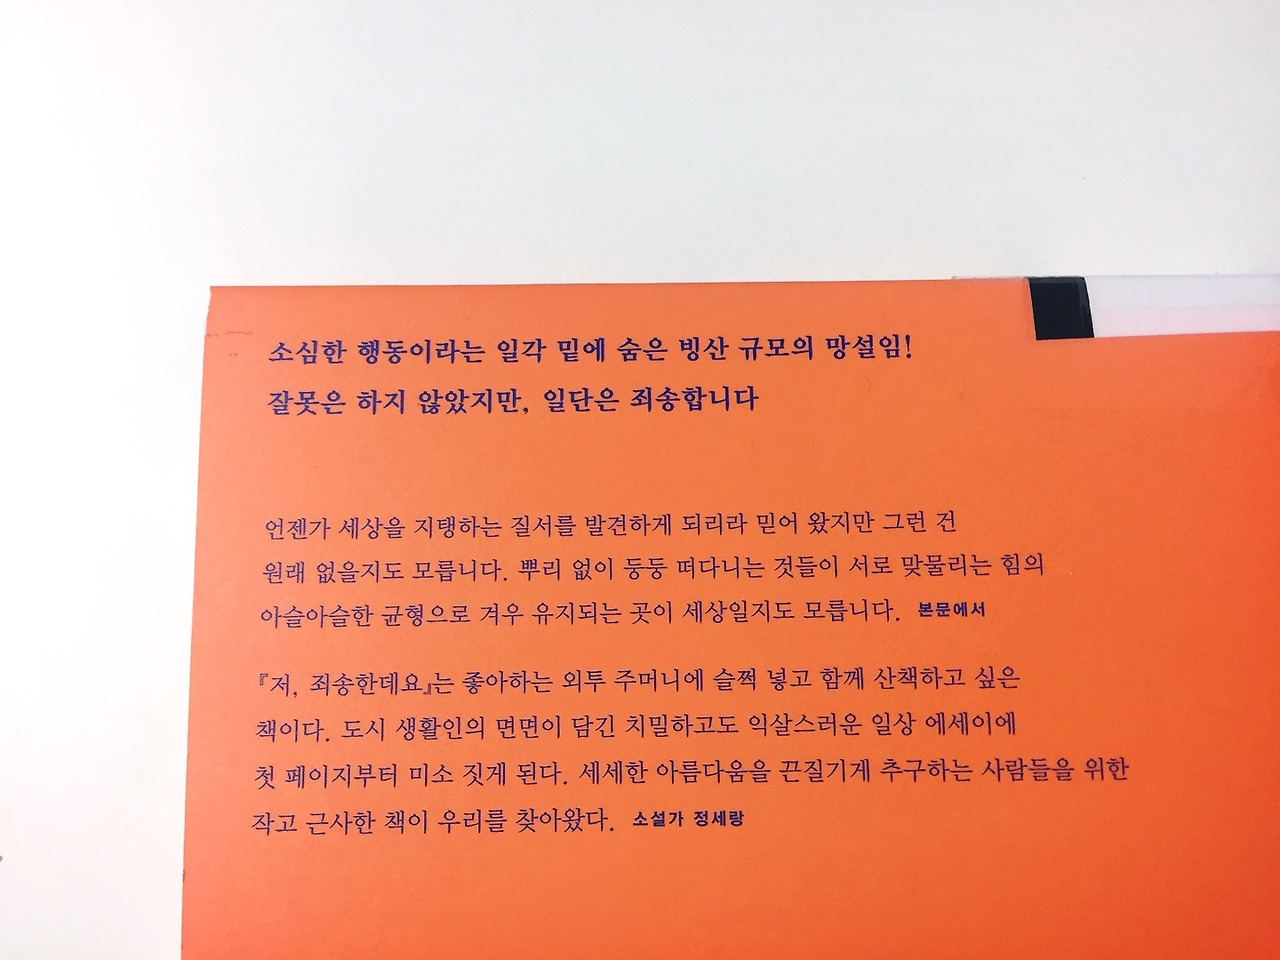 소심한 행동이라는 일각 밑에 숨은 빙산 규모의 망설임!
잘못은 하지 않았지만, 일단은 죄송합니다
언젠가 세상을 지탱하는 질서를 발견하게 되리라 믿어 왔지만 그런 건
원래 없을지도 모릅니다. 뿌리 없이 둥둥 떠다니는 것들이 서로 맞물리는 힘의
아슬아슬한 균형으로 겨우 유지되는 곳이 세상일지도 모릅니다. 본문에서
『저, 죄송한데요』는 좋아하는 외투 주머니에 슬쩍 넣고 함께 산책하고 싶은
책이다. 도시 생활인의 면면이 담긴 치밀하고도 익살스러운 일상 에세이에
첫 페이지부터 미소 짓게 된다. 세세한 아름다움을 끈질기게 추구하는 사람들을 위한
작고 근사한 책이 우리를 찾아왔다. 소설가 정세랑